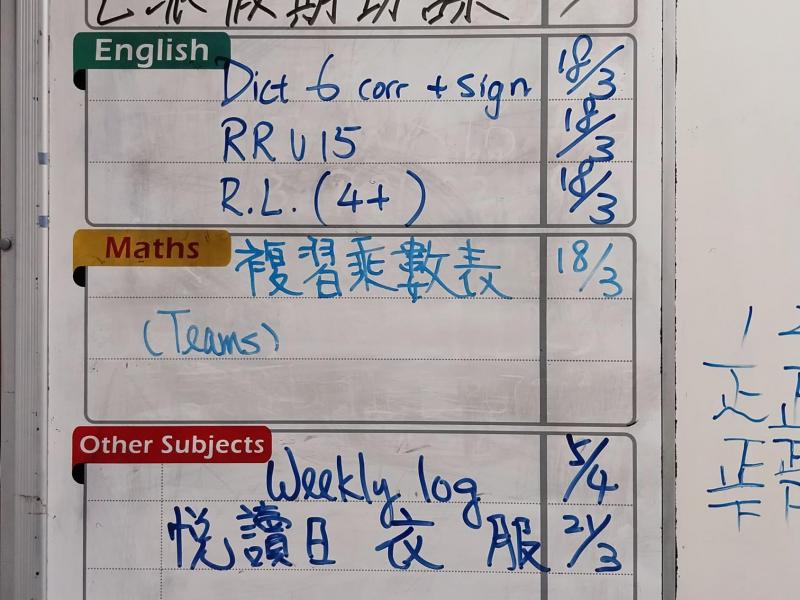 English
Dict 6 corr + sign 18/3
RR U15 18/3
R.L. (4+) 18/3
Maths
複習乘數表 18/3
(Teams)
Other Subjects
Weekly log 5/4
悅讀日 衣服 21/3
1 2
正 正
正 正